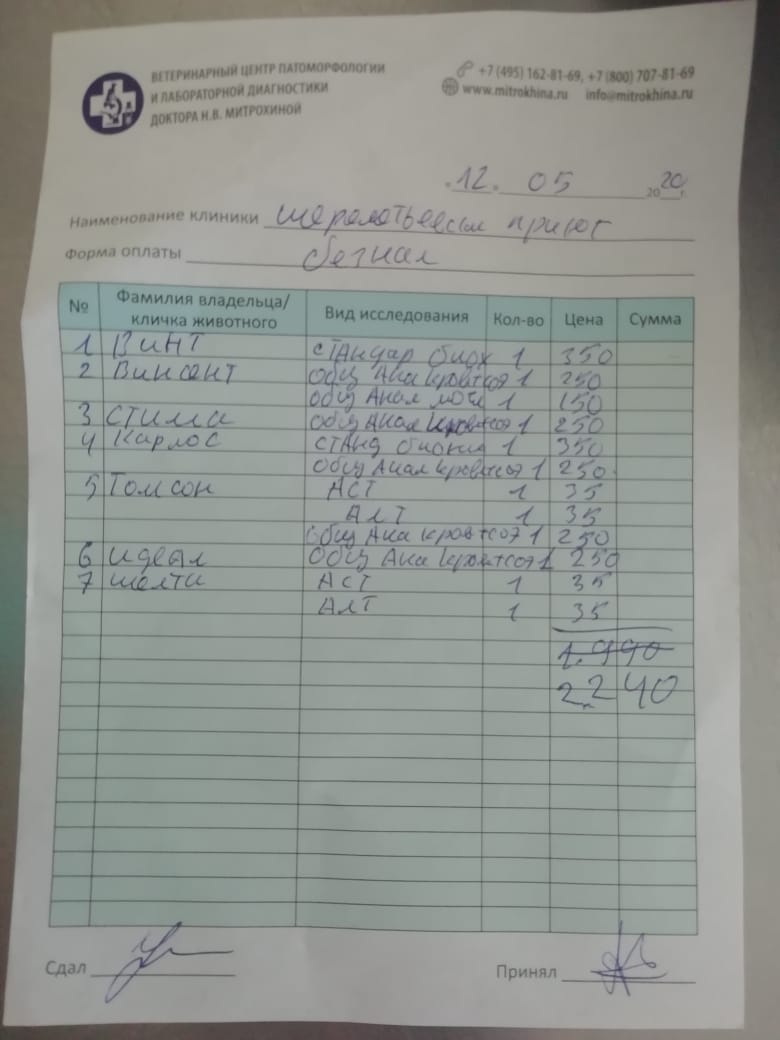 ВЕТЕРИНАРНЫЙ ЦЕНТР ПАТОМОРФОЛОГИИ
И ЛАБОРАТОРНОЙ ДИАГНОСТИКИ
ДОКТОРА Н.В. МИТРОХИНОЙ
+7 (495) 162-81-69, +7 (800) 707-81-69
www.mitrokhina.ru info@mitrokhina.ru
12. 05 2020 г.
Наименование клиники приют
Форма оплаты безнал
№ Фамилия владельца/ кличка животного Вид исследования Кол-во Цена Сумма
1 Винт СТАндар биох 1 350
2 Винсент Общ Ана кров+соэ 1 250
Общ Анал мочи 1 150
3 Стилл Общ Анал кров+соэ 1 250
4 Карлос СТАнд 1 350
Общ Анал кров+соэ 1 250
5 Томсон АСТ 1 35
АЛТ 1 35
Общ Ана кров+соэ 1 250
6 Идеал Общ Ана кров+соэ 1 250
7 Шелти АСТ 1 35
АЛТ 1 35
1.990
2.240
Сдал
Принял